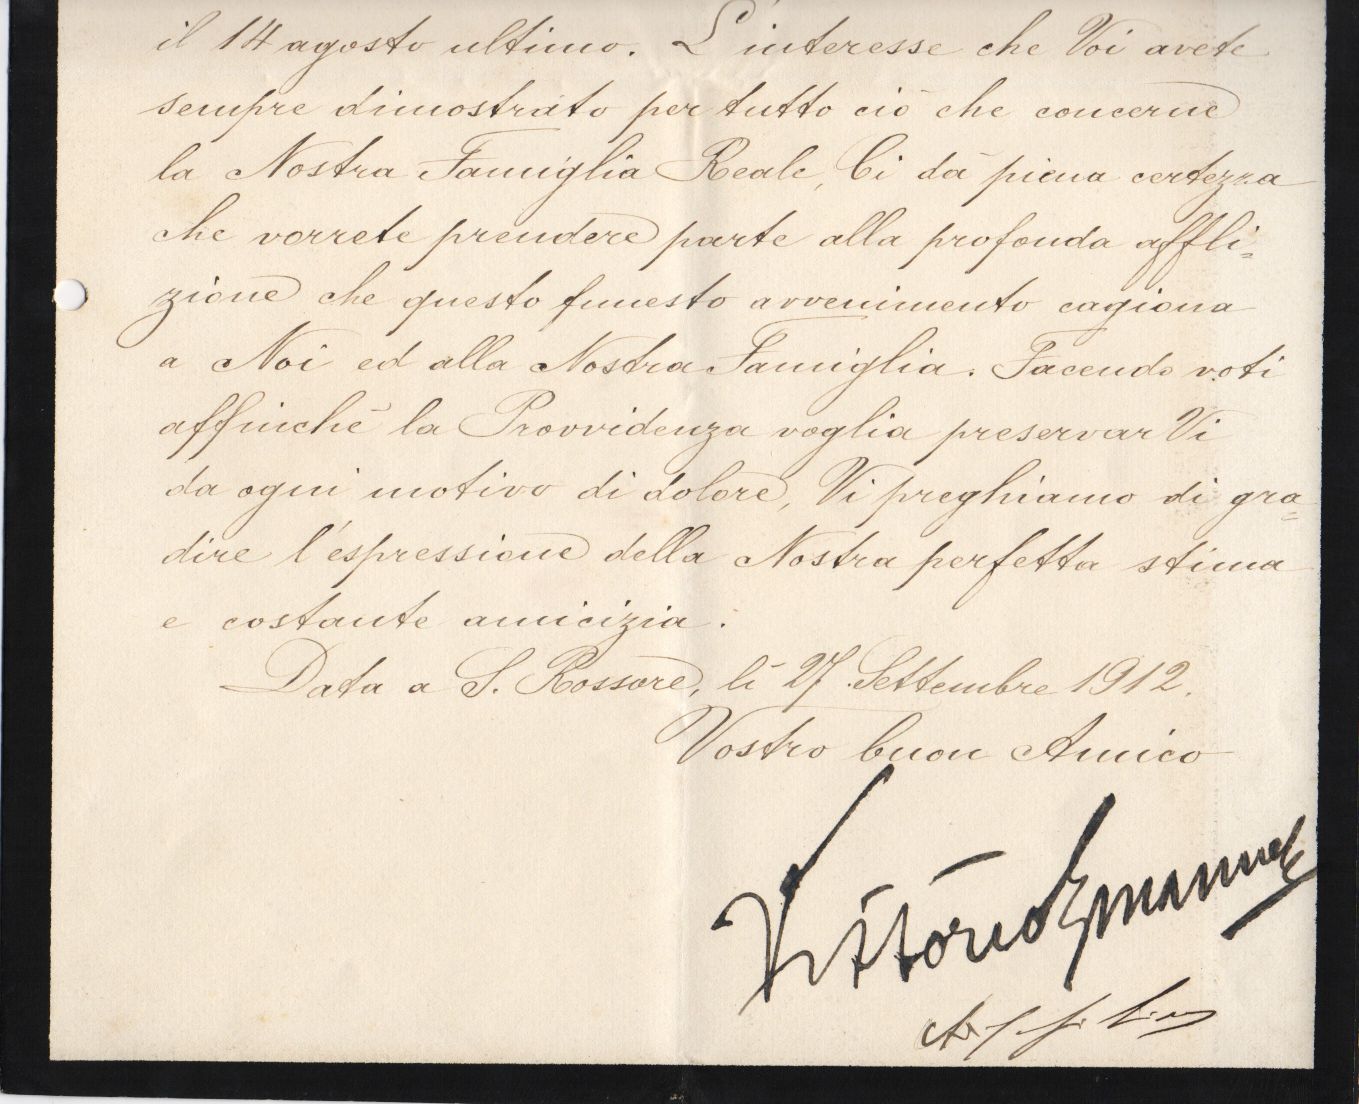 il 14 agosto ultimo. L'interesse che Voi avete
sempre dimostrato per tutto ciò che concerne
la Nostra Famiglia Reale, Ci dà piena certezza
che vorrete prendere parte alla profonda affli=
zione che questo funesto avvenimento cagiona
a Noi ed alla Nostra Famiglia. Facendo voti
affinchè la Provvidenza voglia preservar Vi
da ogni motivo di dolore, Vi preghiamo di gra=
dire l'espressione della Nostra perfetta stima
e costante amicizia.
Data a S. Rossore, lì 27 Settembre 1912.
Vostro buon Amico
Vittorio Emanuele